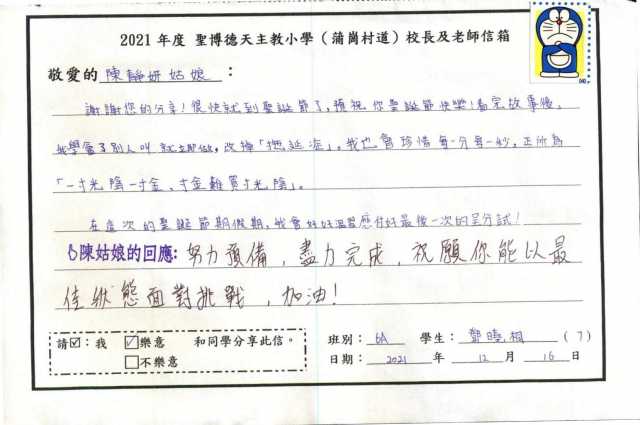 2021 年度 聖博德天主教小學(蒲崗村道)校長及老師信箱
敬愛的 陳靜妍姑娘 :
謝謝您的分享!很快就到聖誕節了,預祝你聖誕節快樂!看完故事後,
我學會了別人叫就立即做,改掉「拖延症」。我也會珍惜每一分每一秒,正所為
「一寸光陰一寸金、寸金難買寸光陰」。
在這次的聖誕節期假期,我會好好溫習應付好最後一次的呈分試!
陳姑娘的回應: 努力預備,盡力完成,祝願你能以最
佳狀態面對挑戰,加油!
請☑:我 ☑樂意 和同學分享此信。
□不樂意
班別: 6A 學生: 鄭曉桐 (7)
日期: 2021 年 12 月 16 日